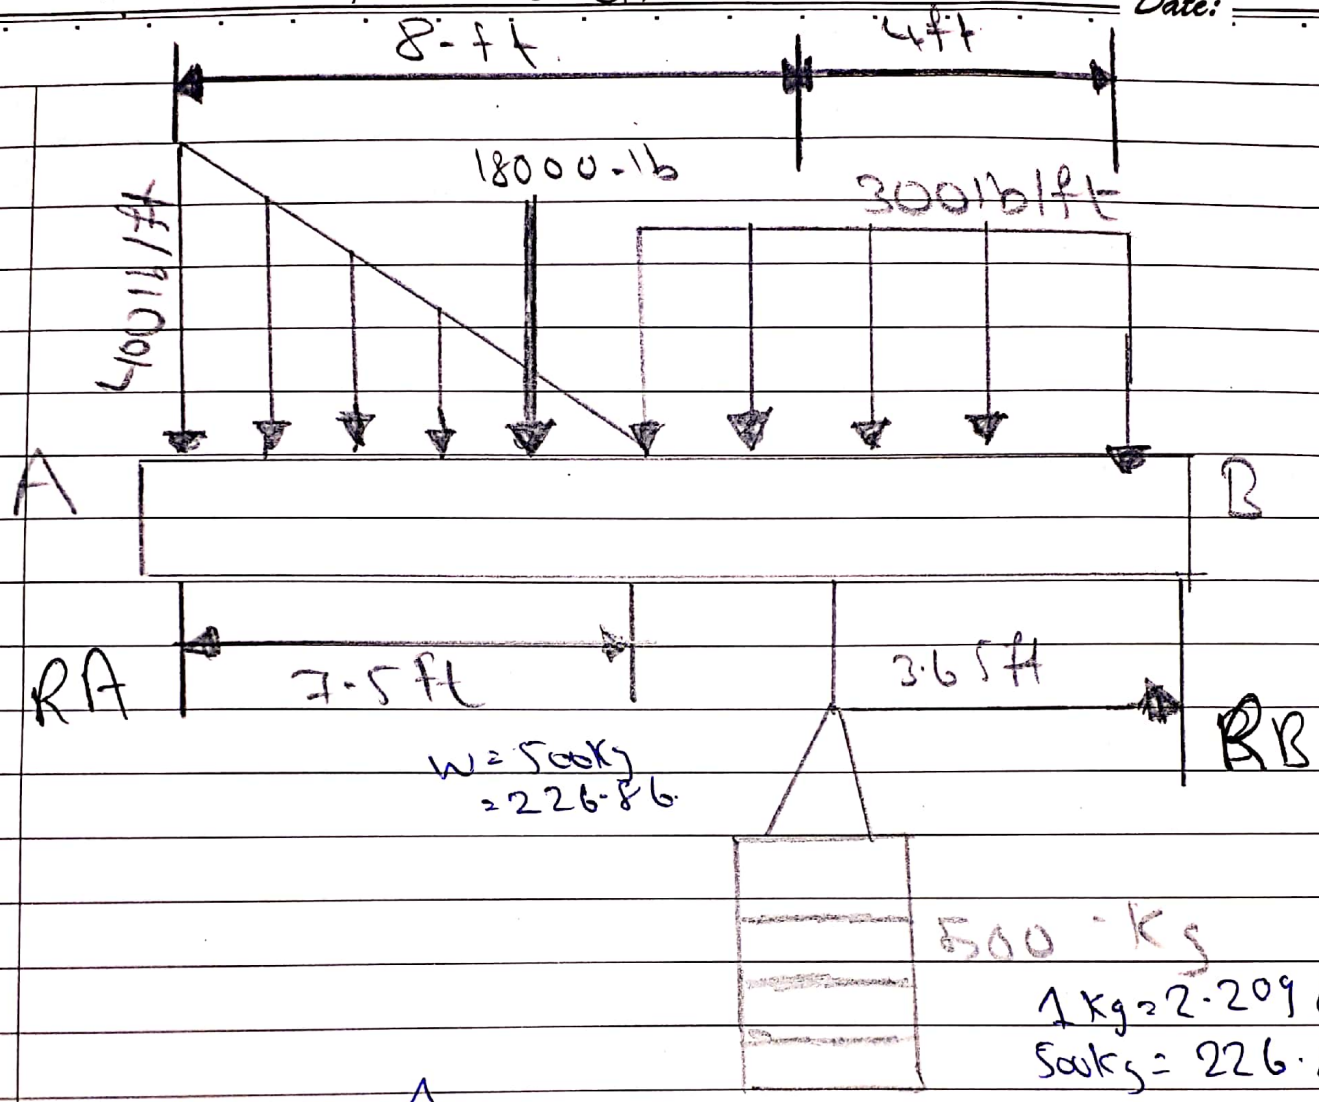 Date:
8-ft
4ft
18000-lb
300lb/ft
400lb/ft
A
B
RA
7.5 ft
3.65ft
RB
W = 500Kg
= 226.86.
500-Kg
1 Kg = 2.209
500kg = 226.